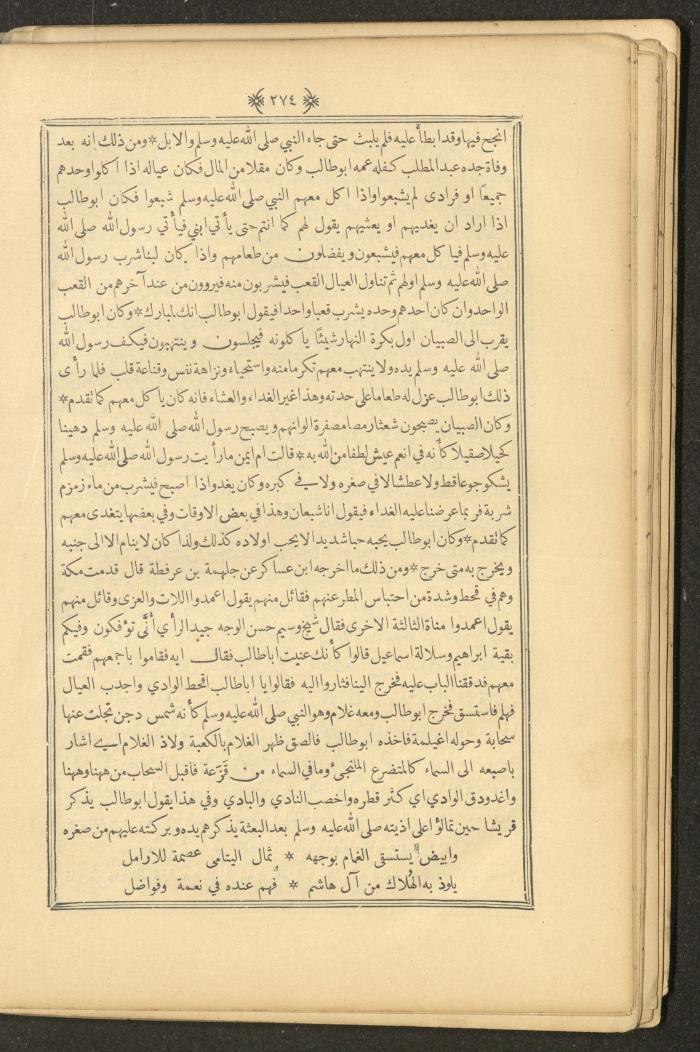 ﴿ ٢٧٤ ﴾
انجح فيها وقد ابطأ عليه فلم يلبث حتى جاء النبي صلى الله عليه وسلم والابل * ومن ذلك انه بعد
وفاة جده عبد المطلب كفله عمه ابو طالب وكان مقلا من المال فكان عياله اذا اكلوا وحدهم
جميعًا او فرادى لم يشبعوا واذا اكل معهم النبي صلى الله عليه وسلم شبعوا فكان ابو طالب
اذا اراد ان يغديهم او يعشيهم يقول لهم كما انتم حتى يأتي ابني فيأتي رسول الله صلى الله
عليه وسلم فياكل معهم فيشبعون ويفضلون من طعامهم واذا كان لبنا شرب رسول الله
صلى الله عليه وسلم اولهم ثم تناول العيال القعب فيشربون منه فيروون من عند آخرهم من القعب
الواحد وان كان احدهم وحده يشرب قعبا واحدا فيقول ابو طالب انك لمبارك * وكان ابو طالب
يقرب الى الصبيان اول بكرة النهار شيئًا ياكلونه فيجلسون وينتهبون فيكف رسول الله
صلى الله عليه وسلم يده ولا ينتهب معهم تكرما منه واستحياء ونزاهة نفس وقناعة قلب فلما رأى
ذلك ابو طالب عزل له طعاما على حدته وهذا غير الغداء والعشاء فانه كان ياكل معهم كما تقدم *
وكان الصبيان يصبحون شعثا رمصا مصفرة الوانهم ويصبح رسول الله صلى الله عليه وسلم دهينا
كحيلا صقيلا كأنه في انعم عيش لطفا من الله به * قالت ام ايمن ما رأيت رسول الله صلى الله عليه وسلم
يشكو جوعا قط ولا عطشا لا في صغره ولا في كبره وكان يغدو اذا اصبح فيشرب من ماء زمزم
شربة فربما عرضنا عليه الغداء فيقول انا شبعان وهذا في بعض الاوقات وفي بعضها يتغدى معهم
كما تقدم * وكان ابو طالب يحبه حبا شديدا لا يحب اولاده كذلك ولذا كان لا ينام الا الى جنبه
ويخرج به متى خرج * ومن ذلك ما اخرجه ابن عساكر عن جلهمة بن عرفطة قال قدمت مكة
وهم في قحط وشدة من احتباس المطر عنهم فقائل منهم يقول اعمدوا اللات والعزى وقائل منهم
يقول اعمدوا مناة الثالثة الاخرى فقال شيخ وسيم حسن الوجه جيد الرأي أنَّى تؤفكون وفيكم
بقية ابراهيم وسلالة اسماعيل قالوا كأنك عنيت ابا طالب فقال ايه فقاموا باجمعهم فقمت
معهم فدققنا الباب عليه فخرج الينا فثاروا اليه فقالوا يا ابا طالب اقحط الوادي واجدب العيال
فهلم فاستسق فخرج ابو طالب ومعه غلام وهو النبي صلى الله عليه وسلم كأنه شمس دجن تجلت عنها
سحابة وحوله اغيلمة فاخذه ابو طالب فالصق ظهر الغلام بالكعبة ولاذ الغلام اي اشار
باصبعه الى السماء كالمتضرع الملتجئ وما في السماء من قَزَعة فاقبل السحاب من ههنا وههنا
واغدودق الوادي اي كثر قطره واخصب النادي والبادي وفي هذا يقول ابو طالب يذكر
قريشا حين تمالؤا على اذيته صلى الله عليه وسلم بعد البعثة يذكرهم يده وبركته عليهم من صغره
وابيض يستسقى الغمام بوجهه * ثمال اليتامى عصمة للارامل
يلوذ به الهُلاك من آل هاشم * فهم عنده في نعمة وفواضل